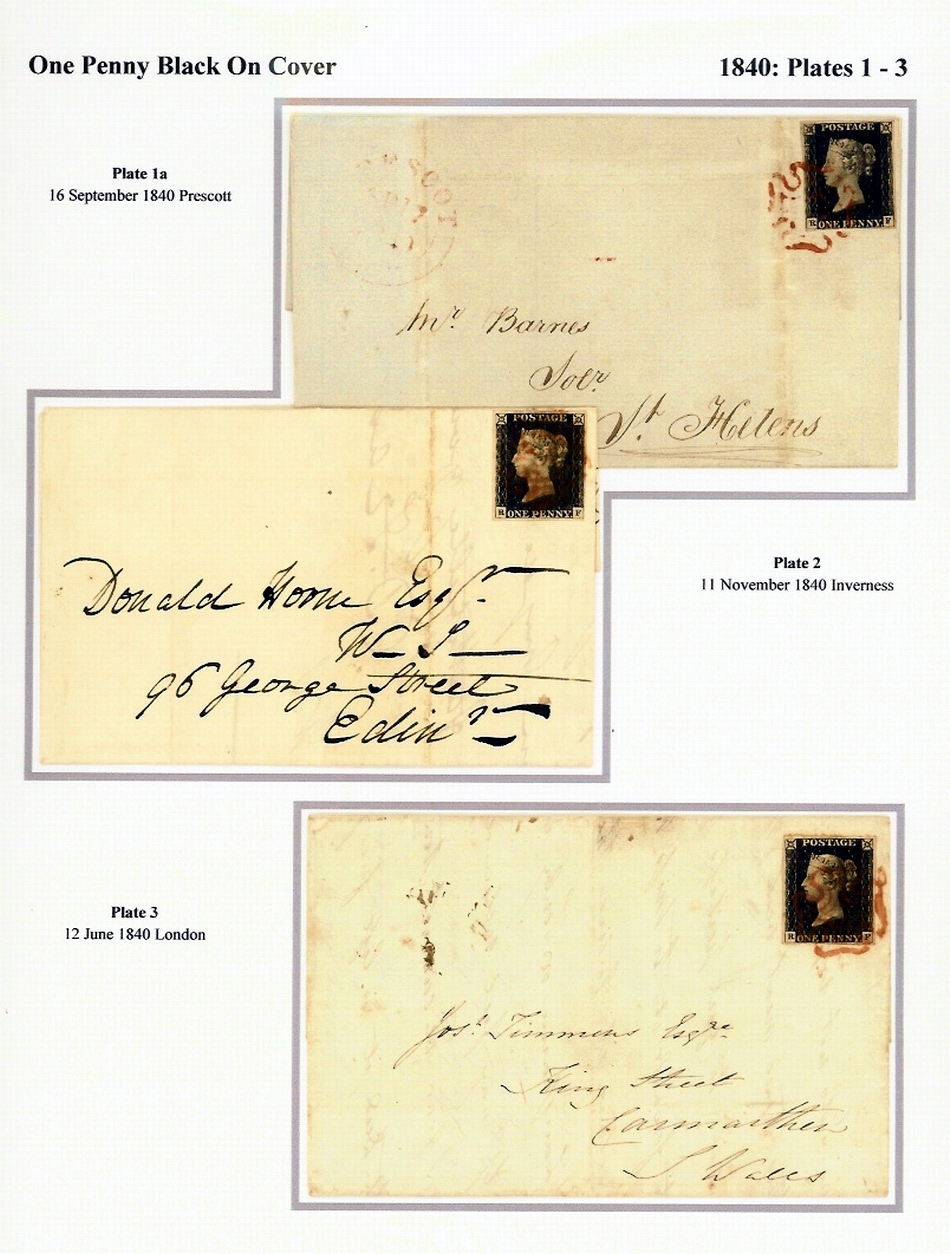 One Penny Black On Cover
1840: Plates 1 - 3
Plate 1a
16 September 1840 Prescott
POSTAGE
R ONE PENNY F
Mr. Barnes
Solr.
St Helens
POSTAGE
R ONE PENNY F
Donald Horne Esqr.
W S
96 George Street
Edinr
Plate 2
11 November 1840 Inverness
Plate 3
12 June 1840 London
POSTAGE
R ONE PENNY F
Josh. Timmens Esqre
King Street
Carmarthen
S Wales